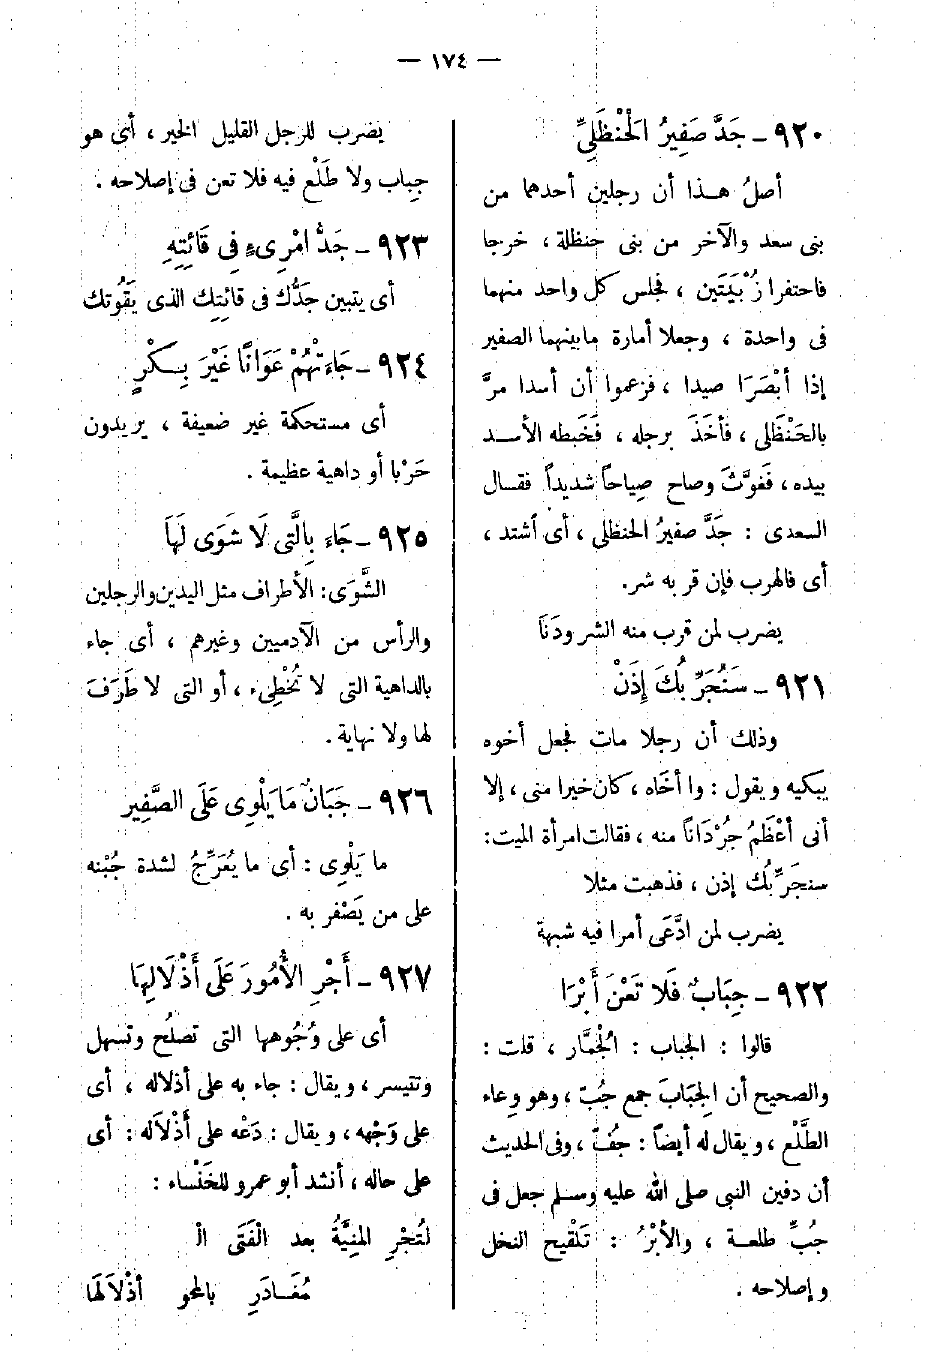 — ١٧٤ —
٩٢٠ – جَدَّ صَفِيرُ الْحَنْظَلِيِّ
أصلُ هــذا أن رجلين أحدهما من
بنى سعد والآخر من بنى حنظلة ، خرجا
فاحتفرا زُبْيَتَين ، فجلس كل واحد منهما
فى واحدة ، وجعلا أمارة مابينهما الصفير
إذا أبْصَرَا صيدا ، فزعموا أن أسدا مرَّ
بالحَنْظَلى ، فأخَذَ برجله ، فَخَبطه الأسد
بيده، فَغَوَّثَ وصاح صِياحاً شديداً فقال
السعدى : جَدَّ صفيرُ الحنظلى ، أى أشتد ،
أى فالهرب فإن قربه شر.
يضرب لمن قرب منه الشر ودَنَا
٩٢١ – سَنُجَرِّبُكَ إِذَنْ
وذلك أن رجلا مات فجعل أخوه
يبكيه ويقول : وا أخَاه ، كان خيرا منى ، إلا
أنى أعْظَمُ جُرْدَاناً منه ، فقالت امرأة الميت:
سنجَرِّبُك إذن ، فذهبت مثلا
يضرب لمن ادَّعَى أمرا فيه شبهة
٩٢٢ – جِبَابٌ فَلا تَعْنَ أَبْرَا
قالوا : الجباب : الْجُمَّار ، قلت :
والصحيح أن الجِبَابَ جمع جُبّ ، وهو وِعاء
الطَّلْع ، ويقال له أيضاً : جُفّ ، وفى الحديث
أن دفين النبى صلى الله عليه وسلم جعل فى
جُبِّ طلعـة ، والأبْرُ : تَلْقيح النخل
وإصلاحه .
يضرب للرجل القليل الخير ، أى هو
جِباب ولا طَلْع فيه فلا تعن فى إصلاحه .
٩٢٣ – جَدُّ امْرِىءٍ فِي قَائِتِهِ
أى يتبين جَدُّك فى قائِتِك الذى يَقُوتك
٩٢٤ – جَاءَتْهُمْ عَوَانًا غَيْرَ بِـكْرٍ
أى مستحكمة غير ضعيفة ، يريدون
حَرْبا أو داهية عظيمة .
٩٢٥ – جَاءَ بِالَّتِى لَا شَوَى لَهَا
الشَّوَى: الأطراف مثل اليدين والرجلين
والرأس من الآدميين وغيرهم ، أى جاء
بالداهية التى لا تُخْطِىء ، أو التى لا طَرَفَ
لها ولا نهاية .
٩٢٦ – جَبَانٌ مَا يَلْوِى عَلَى الصَّفِير
ما يَلْوِى : أى ما يُعَرِّجُ لشدة جُبْنه
على من يَصْفر به .
٩٢٧ – أَجْرِ الأُمُورَ عَلَى أَذْلَالِهَا
أى على وُجُوهها التى تصلُح وتسهل
وتتيسر ، ويقال : جاء به على أذلاله ، أى
على وَجْهه ، ويقال : دَعْه على أَذْلَاله : أى
على حاله ، أنشد أبو عمرو للخَنْساء :
لتُجْرِ المنِيَّةُ بعد الْفَتَى الْـ
مُغَـادَرِ بالمحو أذْلَالَهَا